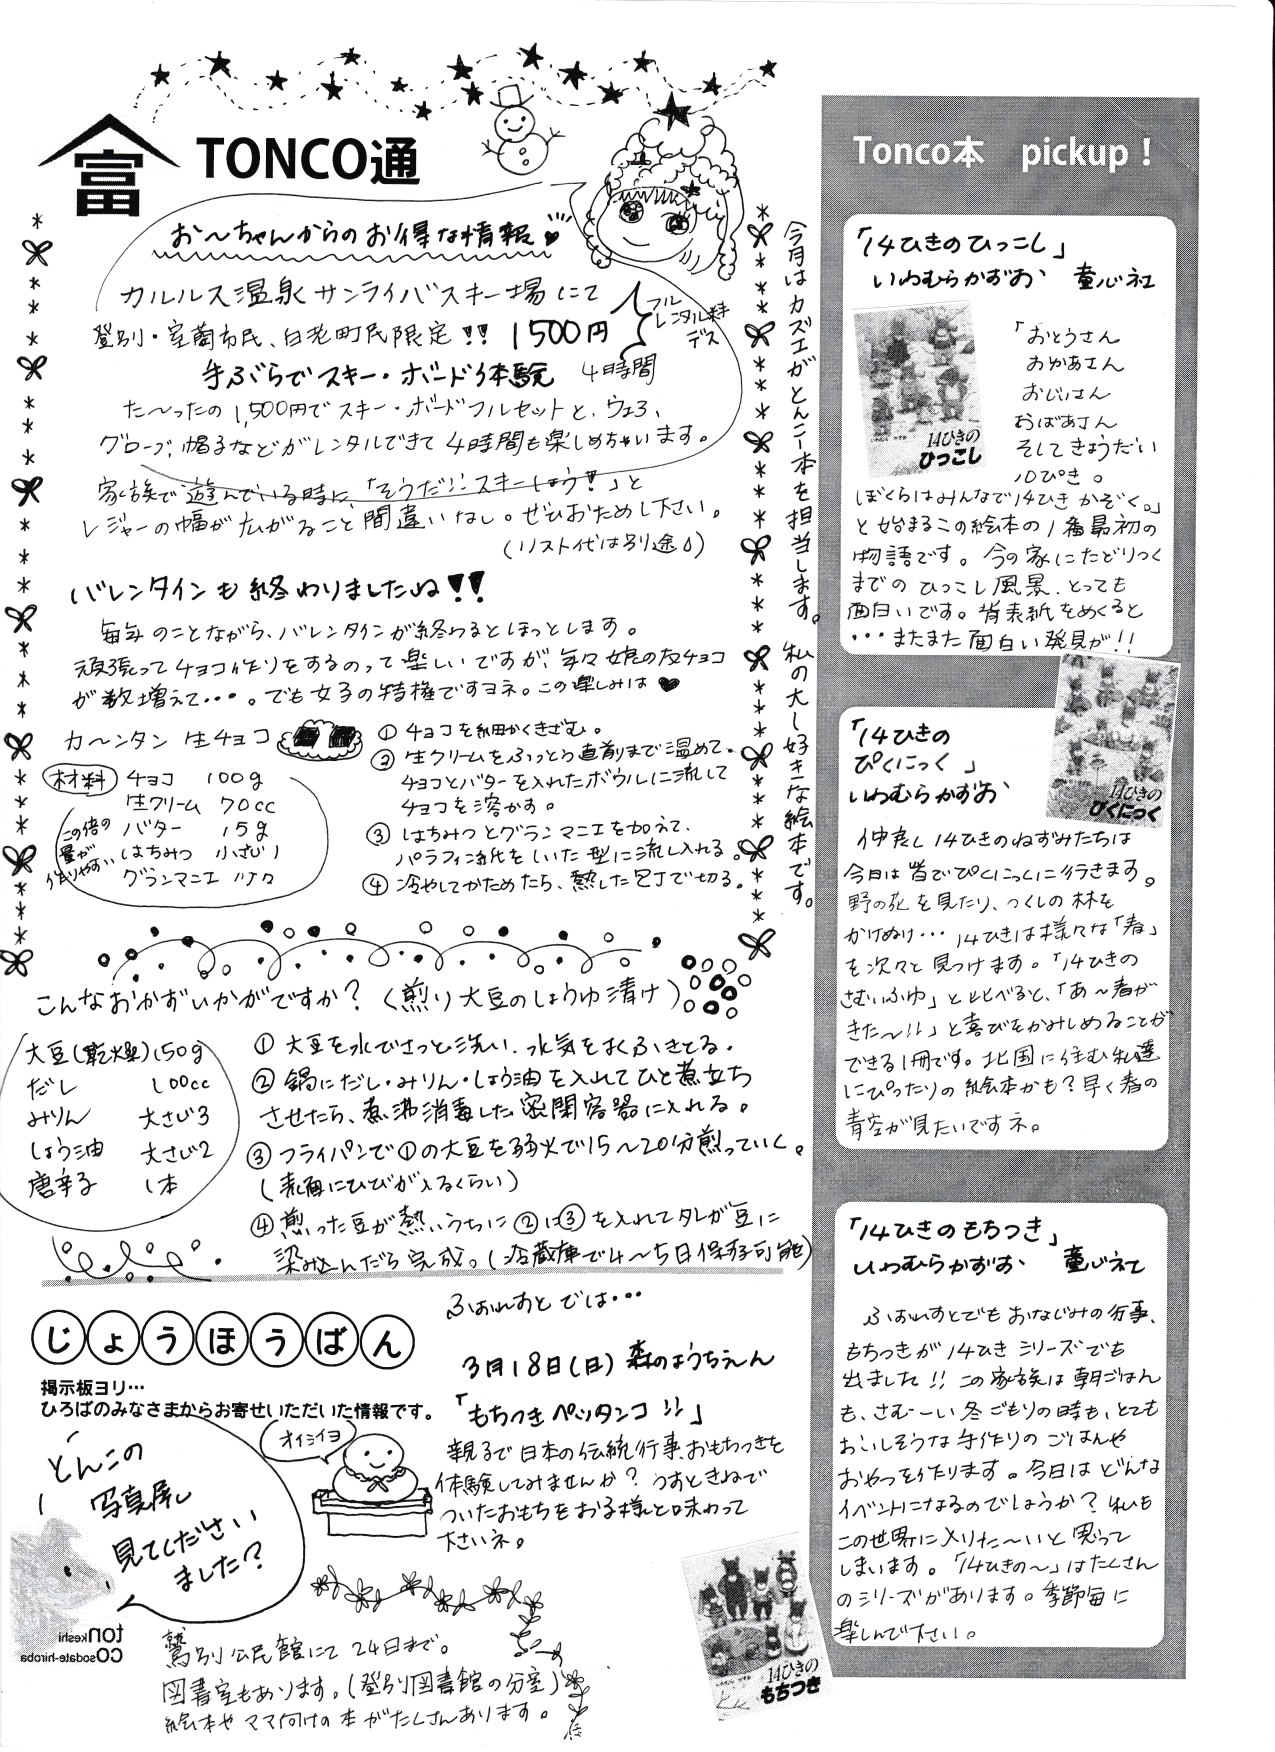 富
TONCO通
お〜ちゃんからのお得な情報♥
カルルス温泉サンライバスキー場にて
登別・室蘭市民、白老町民限定!! 1500円
フル
レンタル料
デス
手ぶらでスキー・ボード体験 4時間
た〜ったの1,500円でスキー・ボードフルセットと、ウェア、
グローブ、帽子などがレンタルできて4時間も楽しめちゃいます。
家族で遊んでいる時に「そうだ!!スキーしよう!」と
レジャーの幅が広がること間違いなし。ぜひおためし下さい。
(リフト代は別途)
バレンタインも終わりましたね!!
毎年のことながら、バレンタインが終わるとほっとします。
頑張ってチョコ作りをするのって楽しいですが、年々娘の友チョコ
が数増えて・・・。でも女子の特権ですヨネ。この楽しみは♥
カ〜ンタン 生チョコ
材料
チョコ 100g
生クリーム 70cc
バター 15g
はちみつ 小さじ1
グランマニエ 〃
この倍の
量が
作りやすい
① チョコを細かくきざむ。
② 生クリームをふっとう直前まで温めて、
チョコとバターを入れたボウルに流して
チョコを溶かす。
③ はちみつとグランマニエを加えて、
パラフィン紙をしいた型に流し入れる。
④ 冷やしてかためたら、熱した包丁で切る。
今月はカズエがとんこ本を担当します。私の大〜好きな絵本です。
こんなおかずいかがですか?(煎り大豆のしょうゆ漬け)
大豆(乾燥)150g
だし 100cc
みりん 大さじ3
しょう油 大さじ2
唐辛子 1本
① 大豆を水でさっと洗い、水気をよくふきとる。
② 鍋にだし・みりん・しょう油を入れてひと煮立ち
させたら、煮沸消毒した密閉容器に入れる。
③ フライパンで①の大豆を弱火で15〜20分煎っていく。
(表面にひびが入るくらい)
④ 煎った豆が熱いうちに②に③を入れてタレが豆に
染み込んだら完成。(冷蔵庫で4〜5日保存可能)
じょうほうばん
掲示板ヨリ…
ひろばのみなさまからお寄せいただいた情報です。
とんこの
写真展し
見てください
ました?
オイシイヨ
tonkeshi
COsodate-hiroba
鷲別公民館にて24日まで。
図書室もあります。(登別図書館の分室)
絵本やママ向けの本がたくさんあります。
ふぉれすとでは・・・
3月18日(日) 森のようちえん
「もちつきペッタンコ!!」
親子で日本の伝統行事、おもちつきを
体験してみませんか? うすときねで
ついたおもちをお子様と味わって
下さいネ。
Tonco本 pickup!
「14ひきのひっこし」
いわむらかずお 童心社
14ひきの
ひっこし
「おとうさん
おかあさん
おじいさん
おばあさん
そしてきょうだい
10ぴき。
ぼくらはみんなで14ひきかぞく。」
と始まるこの絵本の1番最初の
物語です。今の家にたどりつく
までのひっこし風景、とっても
面白いです。背表紙をめくると
・・・またまた面白い発見が!!
「14ひきの
ぴくにっく」
いわむらかずお
14ひきの
ぴくにっく
仲良し14ひきのねずみたちは
今日は皆でぴくにっくに行きます。
野の花を見たり、つくしの林を
かけぬけ・・・14ひきは様々な「春」
を次々と見つけます。「14ひきの
さむいふゆ」と比べると、「あ〜春が
きた〜!!」と喜びをかみしめることが
できる1冊です。北国に住む私達
にぴったりの絵本かも?早く春の
青空が見たいですネ。
「14ひきのもちつき」
いわむらかずお 童心社
ふぉれすとでもおなじみの行事、
もちつきが14ひきシリーズでも
出ました!! この家族は朝ごはん
も、さむーい冬ごもりの時も、とても
おいしそうな手作りのごはんや
おやつを作ります。今日はどんな
イベントになるのでしょうか? 私も
この世界に入りた〜いと思って
しまいます。「14ひきの〜」はたくさん
のシリーズがあります。季節毎に
楽しんで下さい。
14ひきの
もちつき